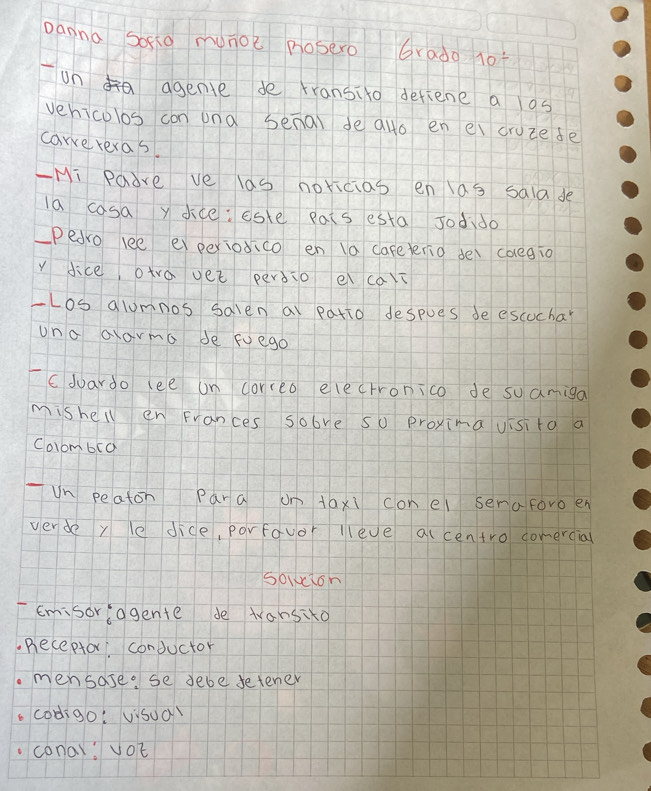 Danna Sofia muñoz Rosero Grado 10-
- Un agente de transito detiene a los
vehiculos con una señal de alto en el cruze de
carreteras.
- Mi Padre ve las noticias en las sala de
la casa y dice: este pais esta Jodido
- Pedro lee el periodico en la cafeteria del colegio
y dice, otra vez perdio el cali
- Los alumnos salen al patio despues de escuchar
una alarma de fuego
- Eduardo lee un correo electronico de su amiga
mishell en Frances sobre su proxima visita a
Colombia
- Un peaton para un taxi con el semaforo en
verde y le dice, por favor lleve al centro comercial
Solucion
- Emisor: agente de transito
. Receptor: conductor
. mensaje: se debe detener
. codigo: visual
. canal: voz